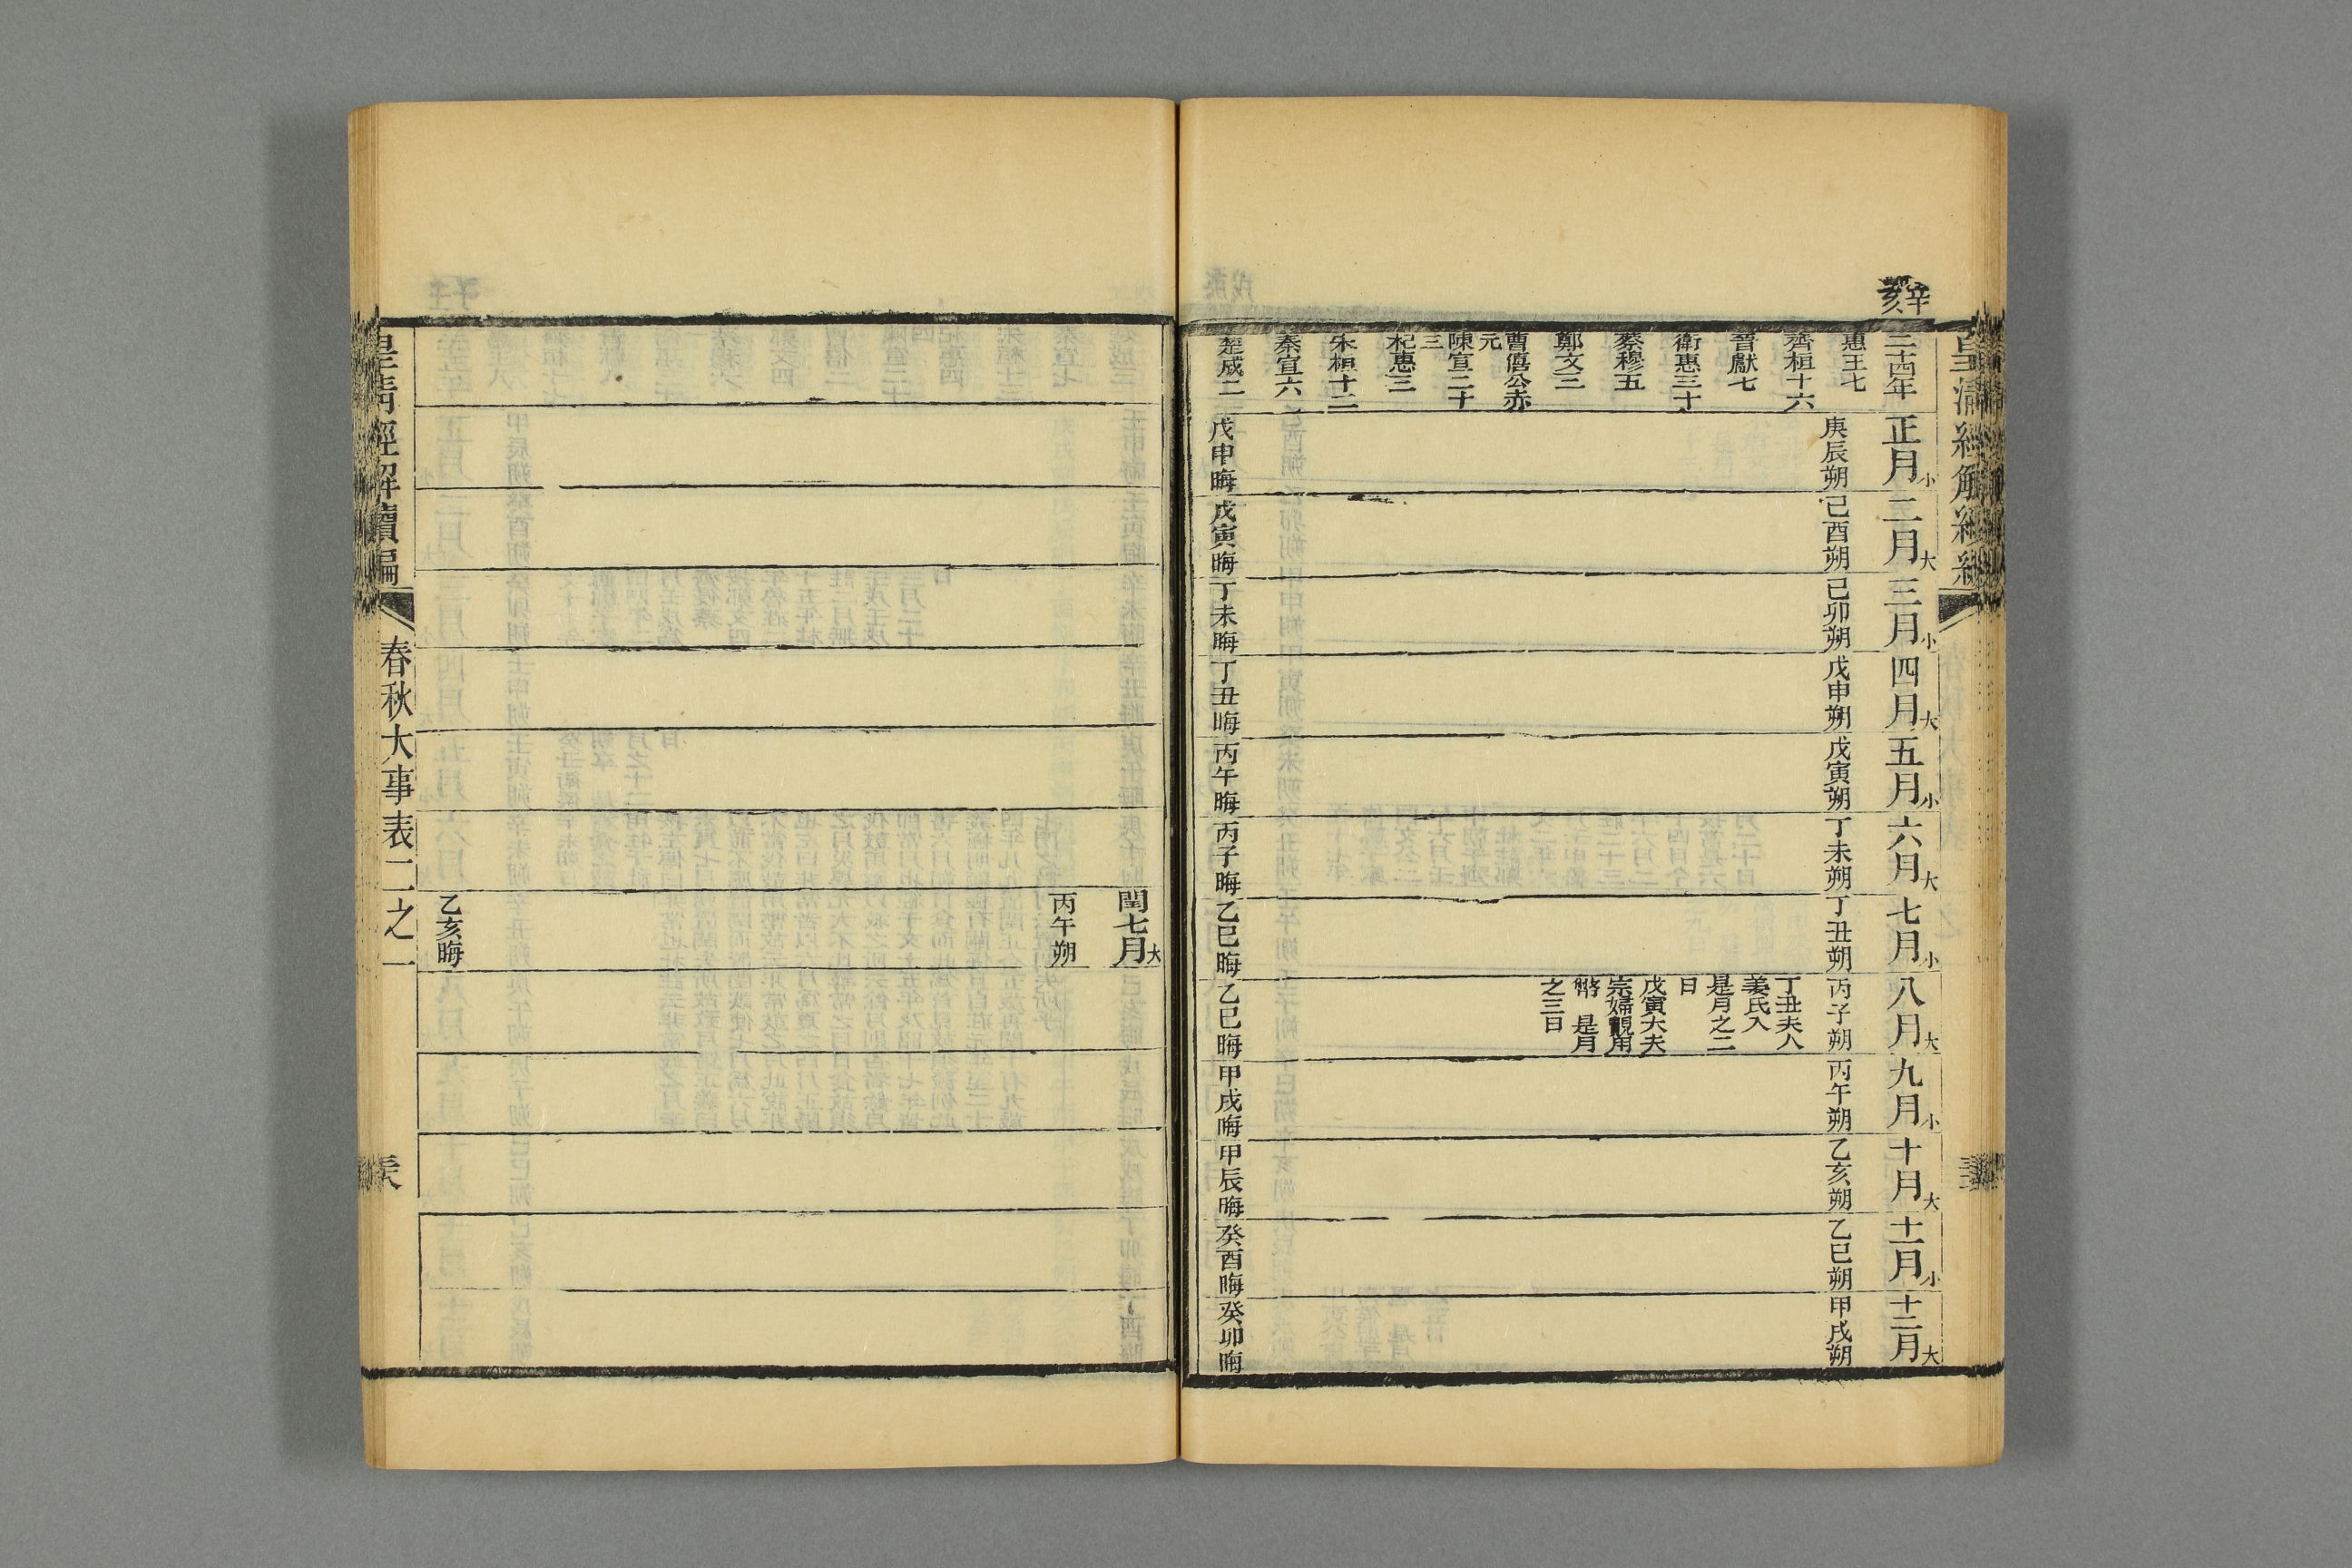 辛亥
二十四年
惠王七
齊桓十六
晉獻七
衛惠三十
蔡穆五
鄭文三
曹僖公赤
元
陳宣二十
三
杞惠三
宋桓十二
秦宣六
楚成二
正月小
庚辰朔
戊申晦
二月大
己酉朔
戊寅晦
三月小
己卯朔
丁未晦
四月大
戊申朔
丁丑晦
五月小
戊寅朔
丙午晦
六月大
丁未朔
丙子晦
七月小
丁丑朔
乙巳晦
八月大
丙子朔
丁丑夫人
姜氏入
是月之二
日
戊寅大夫
宗婦覿用
幣　是月
之三日
乙巳晦
九月小
丙午朔
甲戌晦
十月大
乙亥朔
甲辰晦
十一月小
乙巳朔
癸酉晦
十二月大
甲戌朔
癸卯晦
閏七月大
丙午朔
乙亥晦
皇清經解續編
春秋大事表二之一